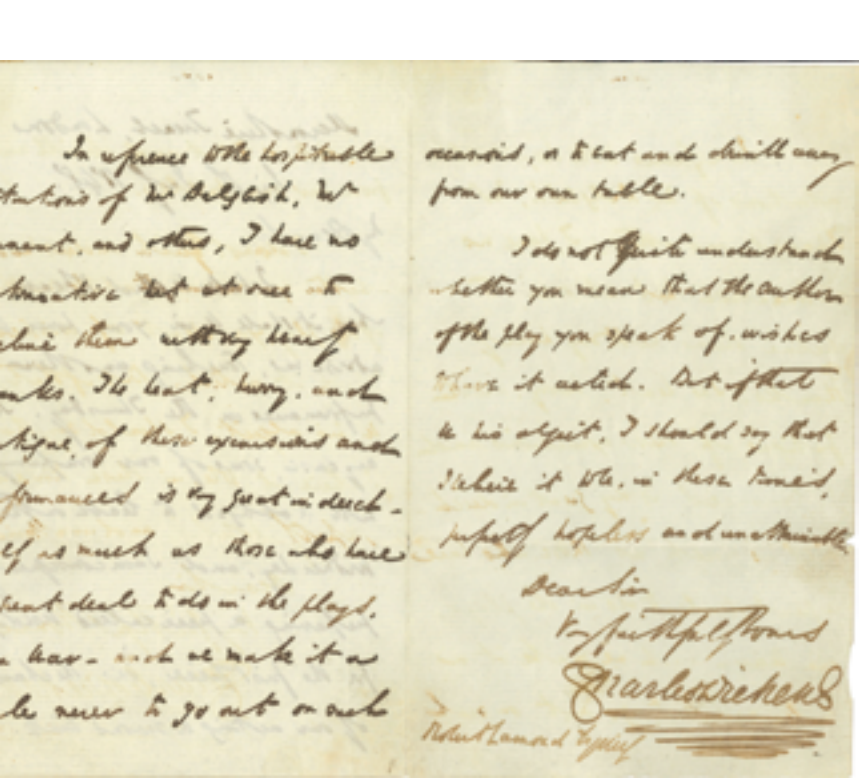 In reference to the hospitable
tations of Mr Dalglish, Mr
and others, I have no
alternative but at once to
cline them with my best
anks. The heat, hurry, and
tigue, of these excursions and
formances is very great indeed -
as much as those who have
great deal to do in the plays.
we make it a
le never to go out on such
occasions, or to eat and drink away
from our own table.
I do not quite understand
whether you mean that the author
of the play you speak of, wishes
to have it acted. But if that
be his object, I should say that
I believe it to be, in these times,
perfectly hopeless and unattainable
Dear Sir
Very faithfully Yours
Charles Dickens
Robert Lamond Esquire